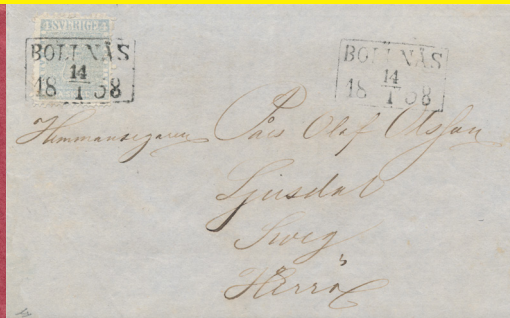 SVERIGE
BOLLNÄS BOLLNÄS
14 14
18 1 58 18 1 58
Hemmansegaren Pårs Olof Olsson
Ljusdal
Sveg
Herrö